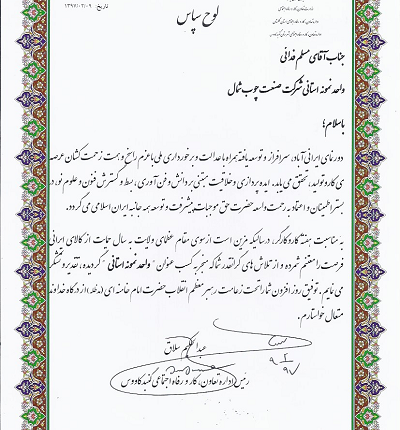 تاریخ: ۱۳۹۷/۰۲/۰۹
لوح سپاس
جناب آقای مسلم فدائی
واحد نمونه استانی شرکت صنعت چوب شمال
باسلام؛
دورنمای ایرانی آباد، سرافراز و توسعه یافته همراه با عدالت و برخورداری ملی با عزم راسخ و همت زحمت کشان عرصه ی
کار و تولید، تحقق می یابد. ایده پردازی و خلاقیت مبتنی بر دانش و فن آوری، بسط و گسترش فنون و علوم نو، در
بستر اطمینان و اعتماد به رحمت واسعه حضرت حق موجبات پیشرفت و توسعه همه جانبه ایران اسلامی می گردد.
به مناسبت هفته کار و کارگر، درسالیکه مزین است از سوی مقام عظمای ولایت به سال حمایت از کالای ایرانی
فرصت را مغتنم شمرده و از تلاش های گرانقدر شما که منجر به کسب عنوان " واحد نمونه استانی " گردیده ، تقدیر و تشکر
می نمایم. توفیق روز افزون شما را تحت زعامت رهبر معظم انقلاب حضرت امام خامنه ای (مدظله) از درگاه خداوند
متعال خواستارم.
عبدالحکیم سلاق
رئیس اداره تعاون، کار و رفاه اجتماعی گنبد کاووس